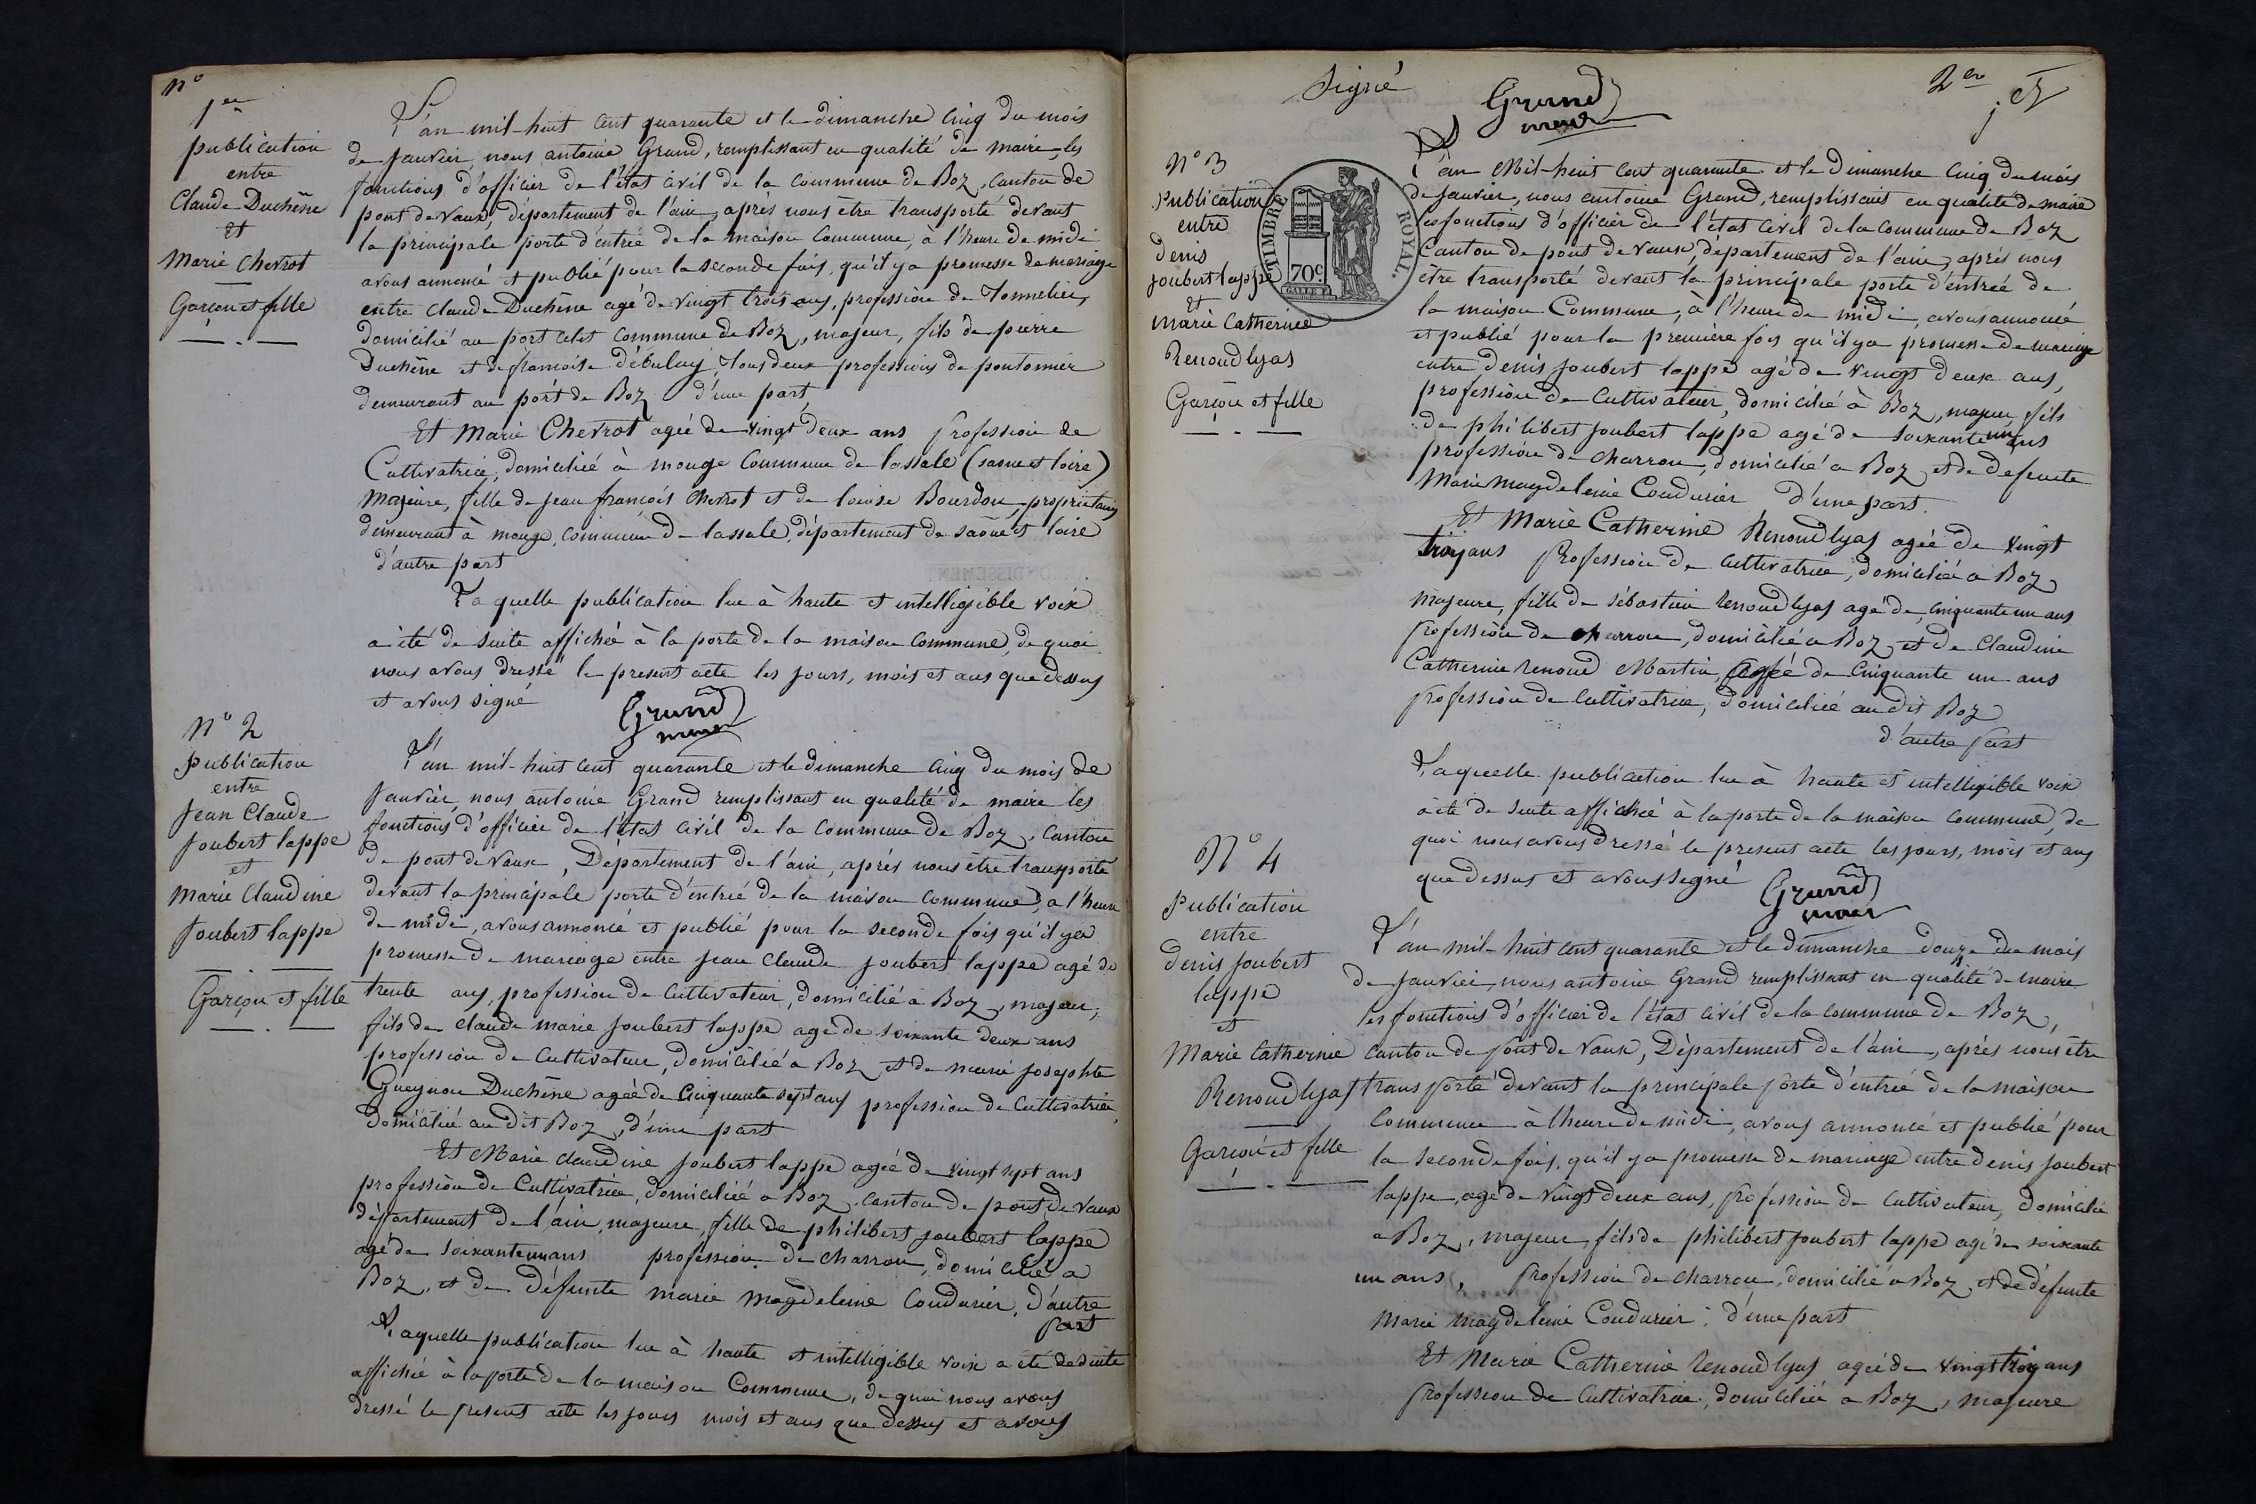 n°
1er
publication
entre
Claude Duchêne
Et
Marie Chevrot
Garçon et fille
L'an mil-huit cent quarante et le dimanche cinq du mois
de janvier, nous antoine Grand, remplissant en qualité de maire, les
fonctions d'officier de l'état civil de la commune de Boz, canton de
pont de vaux, département de l'ain, après nous être transporté devant
la principale porte d'entrée de la maison commune, à l'heure de midi
avons annoncé et publié pour la seconde fois, qu'il y a promesse de mariage
entre claude Duchêne agé de vingt trois ans, profession de Tonnelier,
domicilié au port celet commune de Boz, majeur, fils de pierre
Duchêne et de francoise débulay, tous deux professions de pontonnier
demeurant au port de Boz d'une part,
Et Marie Chevrot agée de vingt deux ans profession de
Cultivatrice, domiciliée à mouge Commune de lassale (saone et loire)
Majeure, fille de jean françois chevrot et de louise Bourdon, propriétaires
demeurant à mouge, commune de lassale, département de saône et loire
d'autre part
La quelle publication lue à haute et intelligible voix
a été de suite affichée à la porte de la maison commune, de quoi
nous avons dressé le present acte les jours, mois et ans que dessus
et avons signé
Grand
maire
N° 2
publication
entre
Jean Claude
Joubert lappe
et
Marie Claudine
Joubert lappe
Garçon et fille
L'an mil-huit cent quarante et le dimanche cinq du mois de
janvier, nous antoine Grand remplissant en qualité de maire les
fonctions d'officier de l'état civil de la commune de Boz, canton
de pont de vaux, Département de l'ain, après nous être transporté
devant la principale porte d'entrée de la maison commune, a l'heure
de midi, avons annoncé et publié pour la seconde fois qu'il y a
promesse de mariage entre jean claude joubert lappe agé de
trente ans, profession de cultivateur, domicilié à Boz, majeur,
fils de claude marie joubert lappe age de soixante deux ans
profession de Cultivateur, domicilié a Boz et de marie josephte
Gueynon Duchêne agée de Cinquante sept ans profession de Cultivatrice
domiciliée au dit Boz, d'une part
Et Marie claudine joubert lappe agée de vingt sept ans
profession de Cultivatrice, domiciliée a Boz, canton de pont de vaux
département de l'ain, majeure, fille de philibert joubert lappe
agé de soixante un ans profession de charron, domicilié a
Boz, et de Défunte marie magdeleine Coudurier, d'autre
part
Laquelle publication lue à haute et intelligible voix a été de suite
affichée à la porte de la maison Commune, de quoi nous avons
dressé le present acte les jours mois et ans que dessus et avons
Signé
Grand
maire
2e
N° 3
Publication
entre
Denis
joubert lappe
Et
marie Catherine
Renoud lyas
Garçon et fille
TIMBRE ROYAL.
70c.
L'an Mil-huit cent quarante et le Dimanche cinq du mois
de janvier, nous antoine Grand, remplissant en qualité de maire
les fonctions d'officier de l'état civil de la commune de Boz
Canton de pont de vaux, département de l'ain, après nous
etre transporté devant la principale porte d'entrée de
la maison Commune, à l'heure de midi, avons annoncé
et publié pour la première fois qu'il y a promesse de mariage
entre Denis joubert lappe agé de vingt deux ans,
profession de Cultivateur, domicilié à Boz, majeur fils
de philibert joubert lappe agé de soixante un ans
profession de charron, domicilié a Boz et de Defunte
Marie magdeleine Coudurier d'une part.
Et Marie Catherine Renoud lyas agée de vingt
trois ans profession de cultivatrice, domiciliée a Boz
majeure, fille de sébastien renoud lyas agé de cinquante un ans
profession de charron, domicilié a Boz et de Claudine
Catherine renoud Martin, agée de Cinquante un ans
profession de cultivatrice, domiciliée au dit Boz
d'autre part
Laquelle publication lue à haute et intelligible voix
a été de suite affichée à la porte de la maison commune, de
quoi nous avons dressé le present acte les jours, mois et ans
que dessus et avons signé
Grand
maire
N° 4
Publication
entre
denis joubert
lappe
et
Marie Catherine
Renoud lyas
Garçon et fille
L'an mil-huit cent quarante et le dimanche douze du mois
de janvier, nous antoine Grand remplissant en qualité de maire
les fonctions d'officier de l'état civil de la commune de Boz,
canton de pont de vaux, Département de l'ain, après nous être
transporté devant la principale porte d'entrée de la maison
Commune à l'heure de midi, avons annoncé et publié pour
la seconde fois, qu'il y a promesse de mariage entre denis joubert
lappe, agé de vingt deux ans, profession de cultivateur, Domicilié
a Boz, majeur, fils de philibert joubert lappe agé de soixante
un ans, profession de charron, domicilié a Boz et de défunte
Marie Magdeleine Coudurier, d'une part
Et Marie Catherine Renoud lyas agée de vingt trois ans
profession de Cultivatrice, domiciliée a Boz, majeure